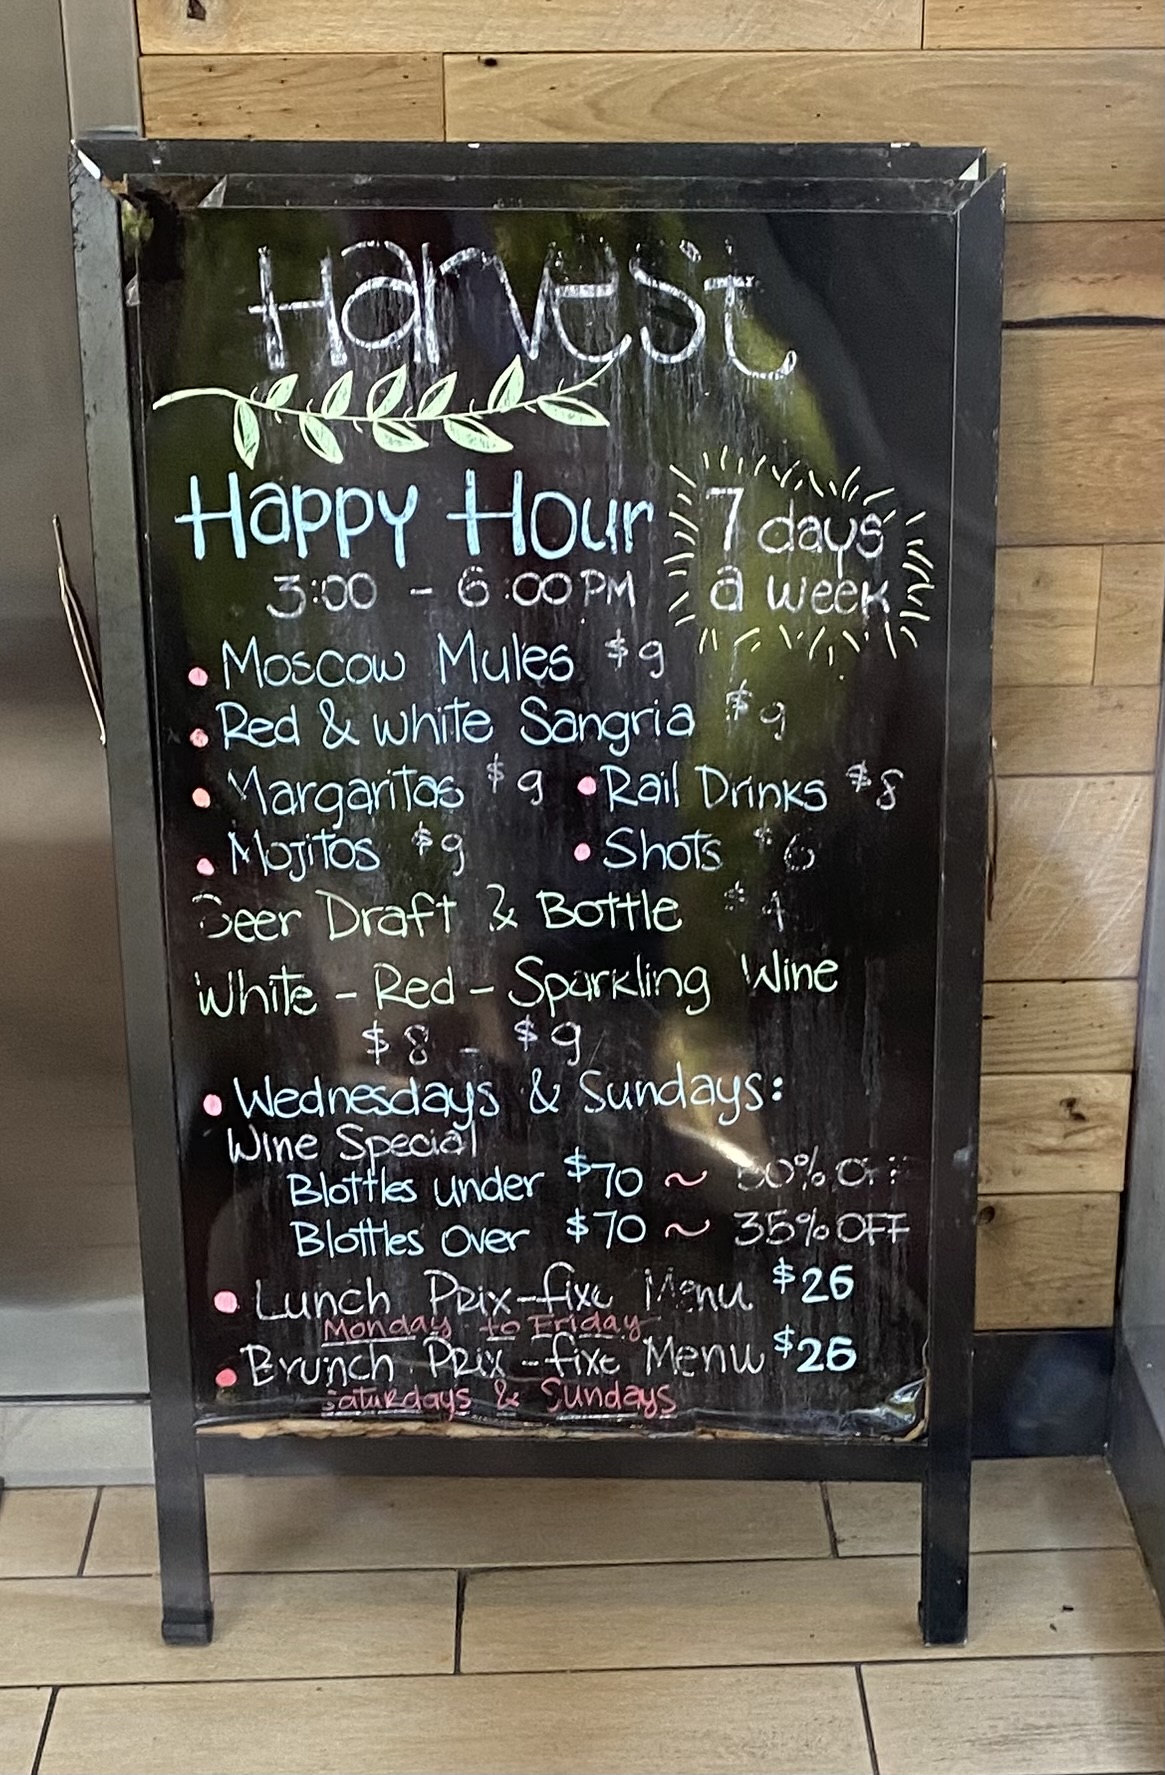 Harvest
Happy Hour
3:00 - 6:00 PM
7 days
a week
• Moscow Mules $9
• Red & white Sangria $9
• Margaritas $9 • Rail Drinks $8
• Mojitos $9 • Shots $6
Beer Draft & Bottle $4
White - Red - Sparkling Wine
$8 - $9
• Wednesdays & Sundays:
Wine Special
Blottles under $70 ~ 50% OFF
Blottles Over $70 ~ 35% OFF
• Lunch Prix-fixe Menu $26
Monday to Friday
• Brunch Prix-fixe Menu $26
Saturdays & Sundays